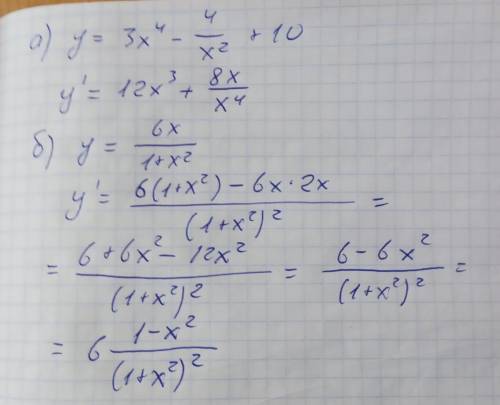 а) y = 3x⁴ - 4/x² + 10
y' = 12x³ + 8x/x⁴
б) y = 6x/(1+x²)
y' = (6(1+x²) - 6x·2x)/(1+x²)² =
= (6+6x²-12x²)/(1+x²)² = (6-6x²)/(1+x²)² =
= 6 (1-x²)/(1+x²)²